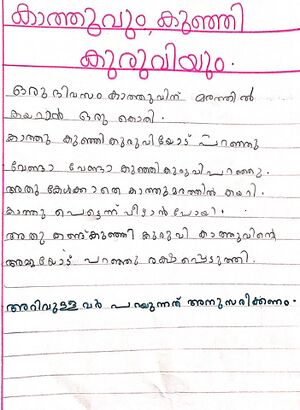 കാത്തുവും, കുഞ്ഞി
കുരുവിയും.
ഒരു ദിവസം കാത്തുവിന് മരത്തിൽ
കയറാൻ ഒരു കൊതി.
കാത്തു കുഞ്ഞികുരുവിയോട് പറഞ്ഞു
വേണ്ടാ വേണ്ടാ കുഞ്ഞികുരുവി പറഞ്ഞു.
അതു കേൾക്കാതെ കാത്തു മരത്തിൽ കയറി.
കാത്തു പെട്ടെന്ന് വീഴാൻ പോയി.
അതു കണ്ട് കുഞ്ഞി കുരുവി കാത്തുവിന്റെ
അമ്മയോട് പറഞ്ഞു രക്ഷപ്പെടുത്തി.
അറിവുള്ളവർ പറയുന്നത് അനുസരിക്കണം.